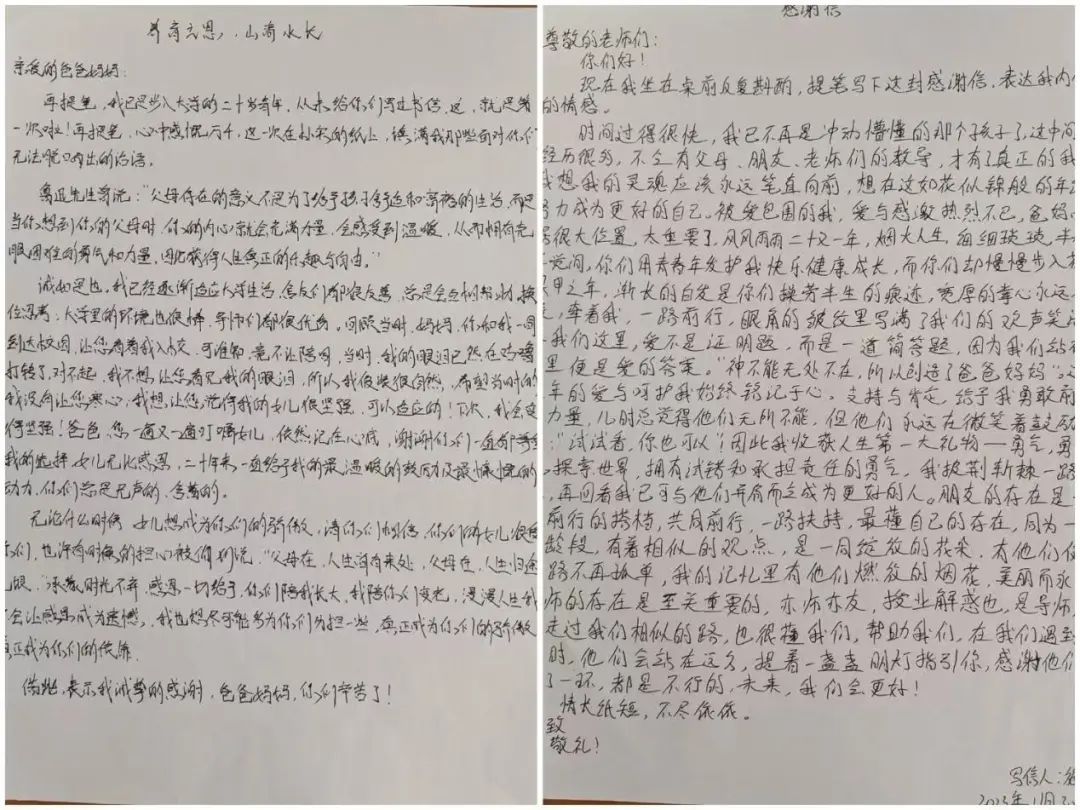 养育之恩，山高水长
亲爱的爸爸妈妈：
再提笔，我已是步入大学的二十岁青年，从未给你们写过书信，这，就是第
一次啦！再提笔，心中感慨万千，这一次在朴实的纸上，填满我那些面对你们
无法脱口而出的话语。
鲁迅先生曾说："父母存在的意义不是为了给予孩子舒适和富裕的生活，而是
当你想到你的父母时，你的内心就会充满力量，会感受到温暖，从而拥有克
服困难的勇气和力量，因此获得人生真正的乐趣与自由。"
诚如是也，我已经逐渐适应大学生活，舍友们都很友善，总是会互相帮助，换
位思考，大学里的环境也很棒，导师们都很优秀。回顾当时，妈妈，你和我一同
到达校园，让您看着我入校，可谁知，竟不让陪同，当时，我的眼泪已然在眼眶
打转了，对不起，我不想让您看见我的眼泪，所以我假装很自然，希望当时的
我没有让您寒心，我想，让您觉得我的女儿很坚强，可以适应的！下次，我会变
得坚强！爸爸，您一遍又一遍叮嘱女儿，依然记在心底，谢谢你们一直都尊重
我的选择，女儿无比感恩，二十年来一直给予我的最温暖的救历及最慷慨的
动力，你们总是无声的，含蓄的。
无论什么时候，女儿想成为你们的骄傲，请你们相信，你们的女儿很
你们，也许有时候的担心被
"父母在，人生尚有来处，父母去，人生只剩归途
感恩一切给予，你们陪我长大，我陪你们变老，漫漫人生我
会让感恩成为遗憾，我也想尽可能多为你们分担一些，真正成为你们的骄傲
真正成为你们的依靠
借此，表示我诚挚的感谢，爸爸妈妈，你们辛苦了！
感谢信
尊敬的老师们：
你们好！
现在我坐在桌前反复斟酌，提笔写下这封感谢信，表达我内心
的情感。
时间过得很快，我已不再是冲动懵懂的那个孩子了，这中间
经历很多，不全有父母、朋友、老师们的教导，才有了真正的我
我想我的灵魂应该永远笔直向前，想在这如花似锦般的年
努力成为更好的自己。被爱包围的我，爱与感激热烈不已，爸妈
居很大位置，太重要了，风风雨雨二十又一年，烟火人生，每细琐琐，半
世间，你们用青春年岁护我快乐健康成长，而你们却慢慢步入
甲之年，渐长的白发是你们操劳半生的痕迹，宽厚的掌心永远
，牵着我，一路前行，眼角的皱纹里写满了我们的欢声笑语
我们这里，爱不是证明题，而是一道简答题，因为我们站
里便是爱的答案。"神不能无处不在，所以创造了爸爸妈妈"。这
年的爱与呵护我始终铭记于心。支持与肯定，给予我勇敢前
力量，儿时总觉得他们无所不能，但他们永远在微笑着鼓励
："试试看，你也可以！因此我收获人生第一大礼物——勇气，勇
探索世界，拥有试错和承担责任的勇气。我披荆斩棘一路
，再回看我已可与他们并肩而立成为更好的人。朋友的存在是
前行的搭档，共同前行，一路扶持，最懂自己的存在，同为一
龄段，有着相似的观点，是一同绽放的花朵，有他们
路不再孤单，我的记忆里有他们燃放的烟花，美丽而永
师的存在是至关重要的，亦师亦友，授业解惑也，是导师，
走过我们相似的路，也很懂我们，帮助我们，在我们遇到
时，他们会站在远处，提着一盏盏明灯指引你，感谢他们
了一环，都是不行的，未来，我们会更好！
情长纸短，不尽依依。
致
敬礼！
写信人：
2023年11月